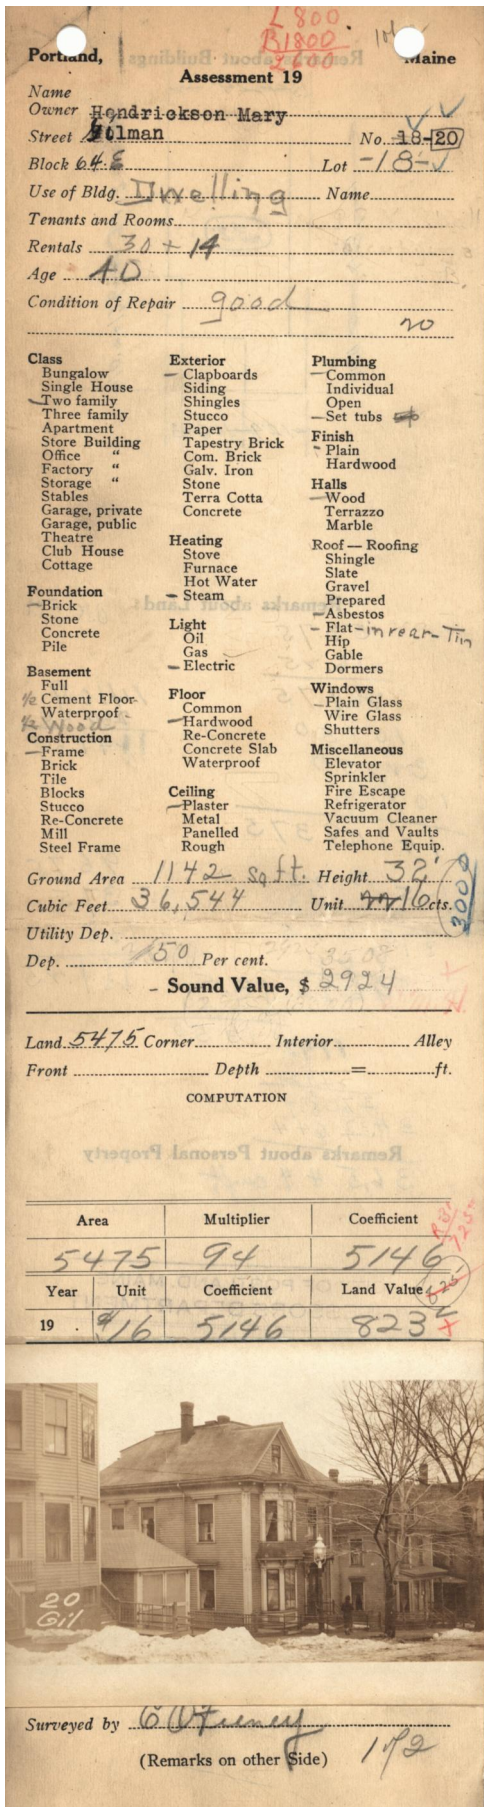 L 800
B 1800
2600
Portland, Maine
Assessment 19
Name
Owner Hendrickson Mary
Street Gilman No. 18-20
Block 64-E Lot -18-
Use of Bldg. Dwelling Name
Tenants and Rooms
Rentals 30 + 14
Age 40
Condition of Repair good
20
Class
Bungalow
Single House
Two family
Three family
Apartment
Store Building
Office "
Factory "
Storage "
Stables
Garage, private
Garage, public
Theatre
Club House
Cottage
Foundation
Brick
Stone
Concrete
Pile
Basement
Full
½ Cement Floor
Waterproof
½ Wood
Construction
Frame
Brick
Tile
Blocks
Stucco
Re-Concrete
Mill
Steel Frame
Exterior
Clapboards
Siding
Shingles
Stucco
Paper
Tapestry Brick
Com. Brick
Galv. Iron
Stone
Terra Cotta
Concrete
Heating
Stove
Furnace
Hot Water
Steam
Light
Oil
Gas
Electric
Floor
Common
Hardwood
Re-Concrete
Concrete Slab
Waterproof
Ceiling
Plaster
Metal
Panelled
Rough
Plumbing
Common
Individual
Open
Set tubs
Finish
Plain
Hardwood
Halls
Wood
Terrazzo
Marble
Roof — Roofing
Shingle
Slate
Gravel
Prepared
Asbestos
Flat - in rear - Tin
Hip
Gable
Dormers
Windows
Plain Glass
Wire Glass
Shutters
Miscellaneous
Elevator
Sprinkler
Fire Escape
Refrigerator
Vacuum Cleaner
Safes and Vaults
Telephone Equip.
Ground Area 1142 sq ft. Height 32'
Cubic Feet 36,544 Unit 16 cts.
3000
Utility Dep.
Dep. 50 Per cent.
Sound Value, $ 2924
Land 5475 Corner Interior Alley
Front Depth = ft.
COMPUTATION
Remarks about Personal Property
Area Multiplier Coefficient
5475 94 5146
Year Unit Coefficient Land Value
19 . $16 5146 823
20
Gil
Surveyed by
(Remarks on other Side) 1 of 2